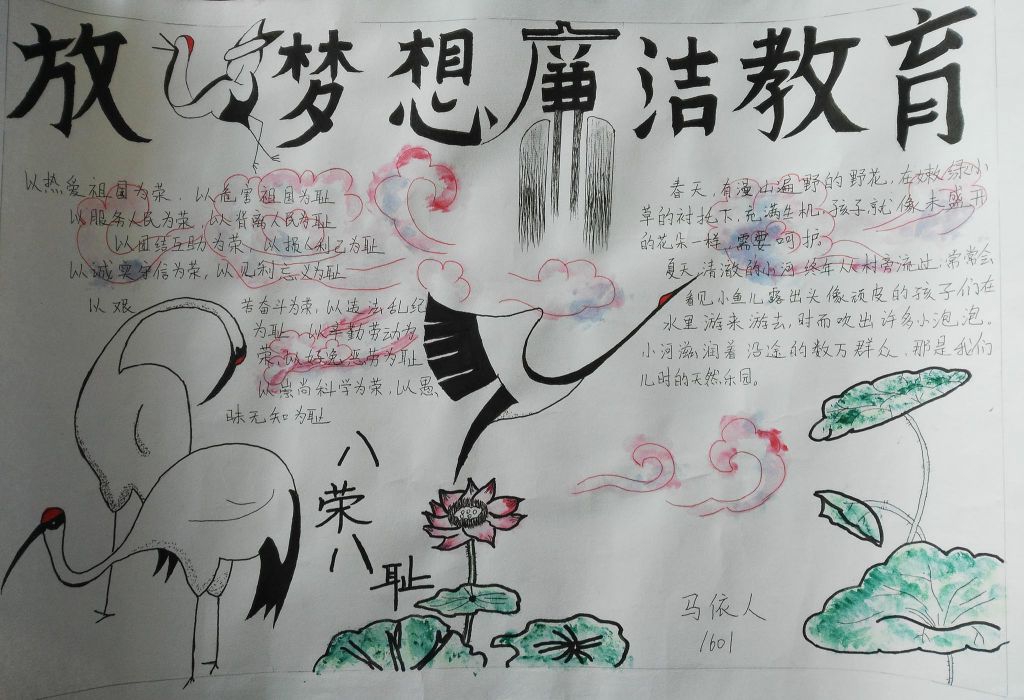 放飞梦想廉洁教育
以热爱祖国为荣，以危害祖国为耻
以服务人民为荣，以背离人民为耻
以团结互助为荣，以损人利己为耻
以诚实守信为荣，以见利忘义为耻
以艰苦奋斗为荣，以违法乱纪
为耻，以辛勤劳动为
荣，以好逸恶劳为耻
以崇尚科学为荣，以愚
昧无知为耻
八
荣
八
耻
春天，有漫山遍野的野花，在嫩绿小
草的衬托下，充满生机，孩子就像未盛开
的花朵一样，需要呵护。
夏天清澈的小河终年从村旁流过，常常会
看见小鱼儿露出头像顽皮的孩子们在
水里游来游去，时而吹出许多小泡泡。
小河滋润着沿途的数万群众，那是我们
儿时的天然乐园。
马依人
1601